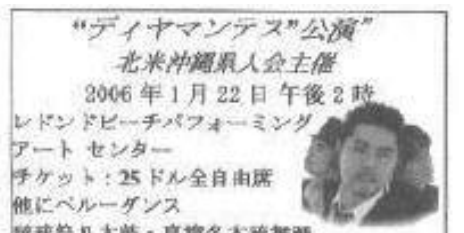 “ディヤマンテス”公演”
北米沖縄県人会主催
2006年1月22日 午後2時
レドンドビーチパフォーミング
アート センター
チケット：25ドル全自由席
他にペルーダンス